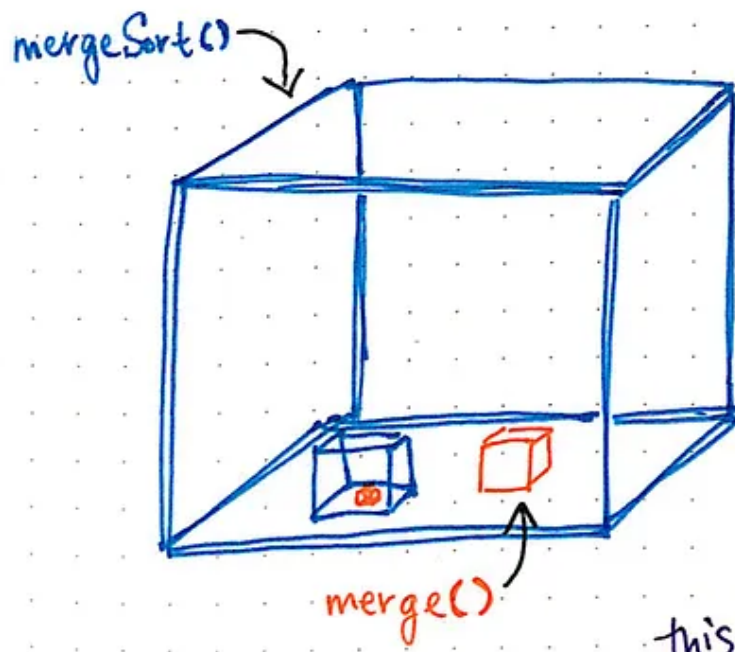 mergeSort()
merge()
this